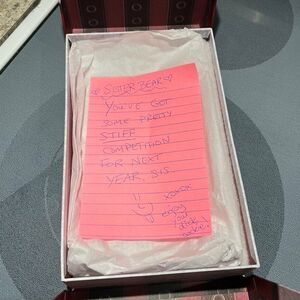 ♡ SISTER BEAR ♡
YOU'VE GOT
SOME PRETTY
STIFF
COMPETITION
FOR NEXT
YEAR, SIS
xoxox
enjoy